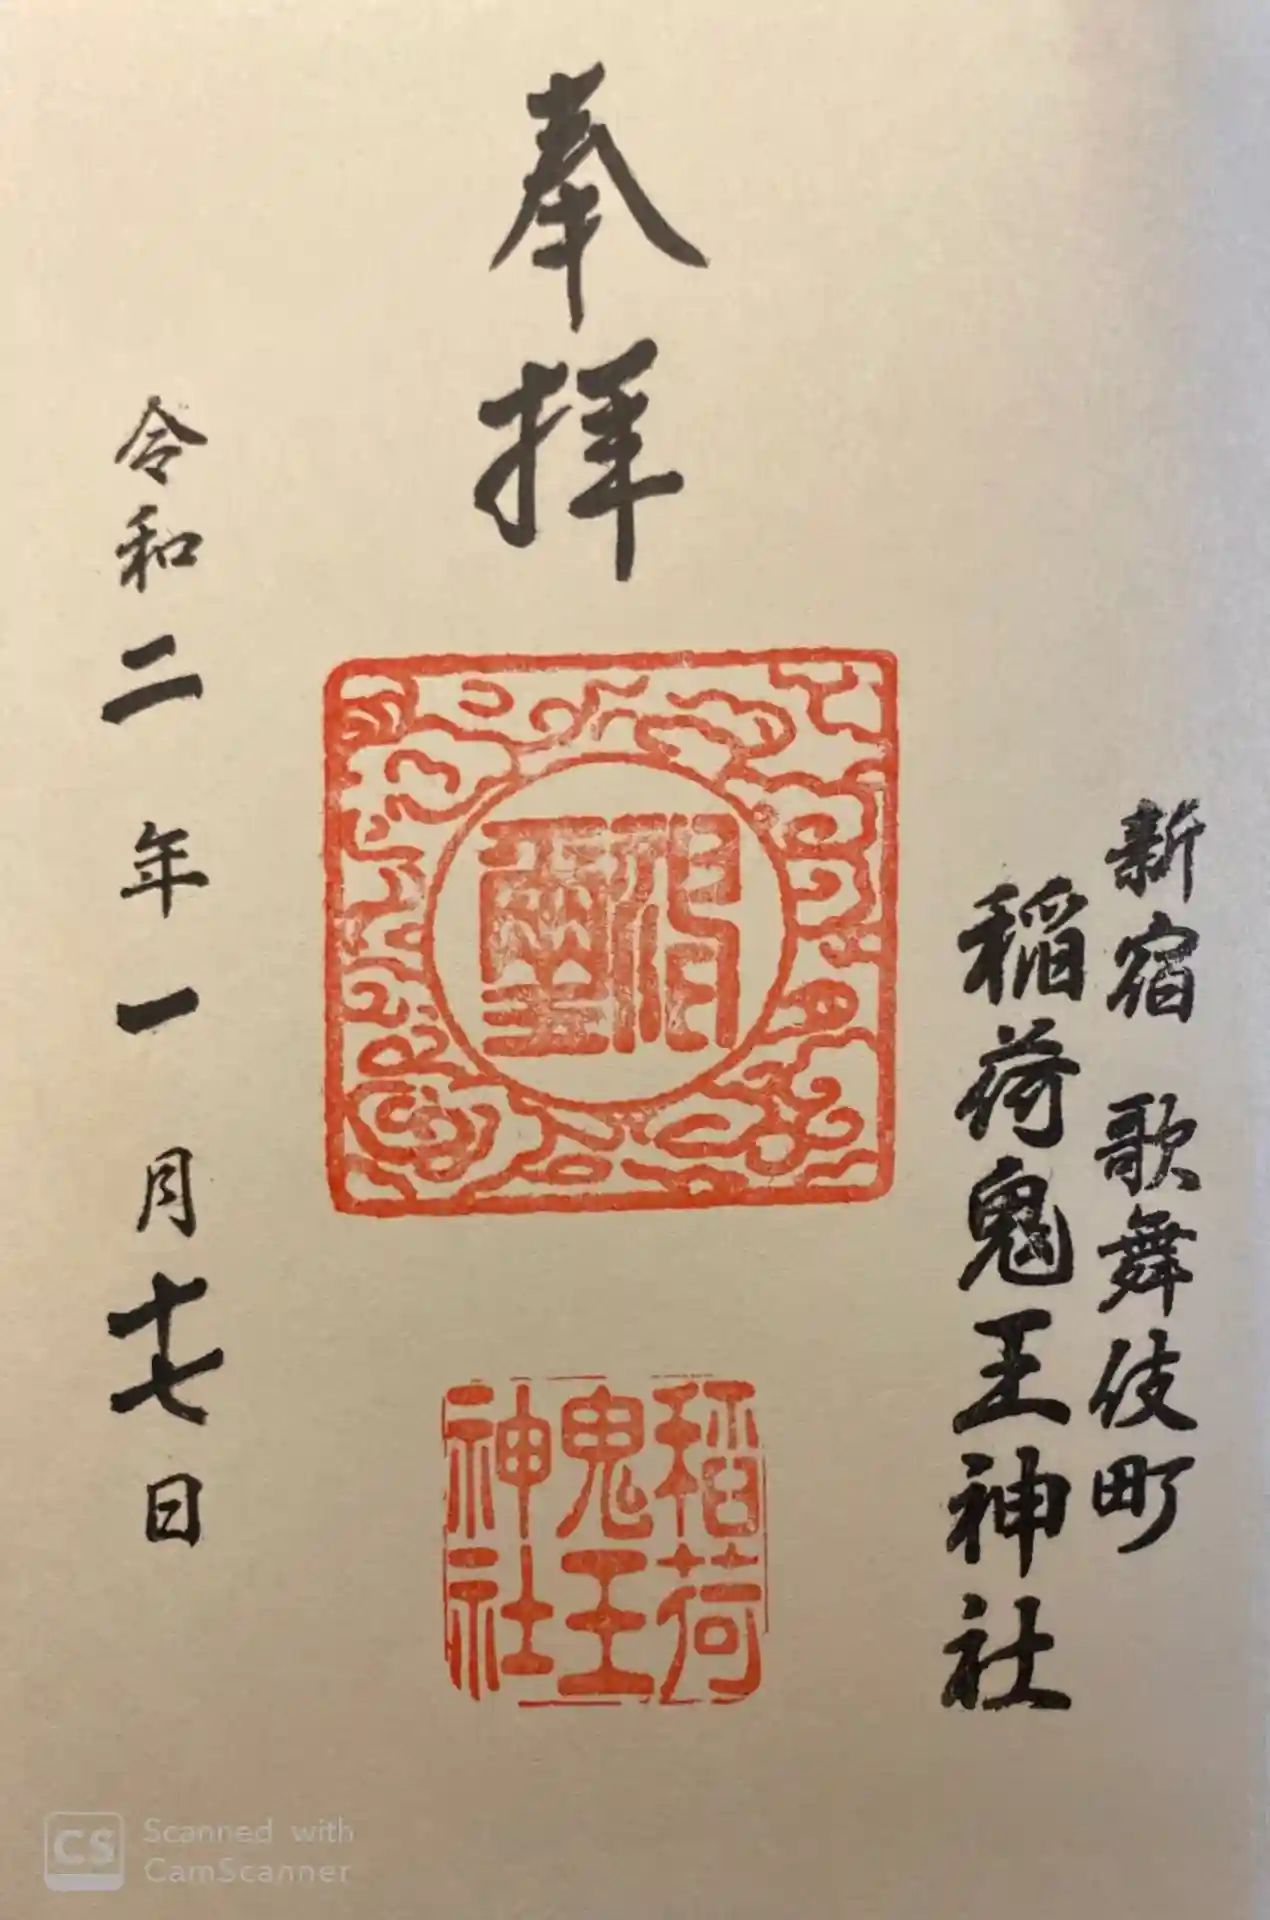 新宿 歌舞伎町
稲荷鬼王神社
奉拝
稲荷
鬼王
神社
令和二年一月十七日
CS Scanned with
CamScanner